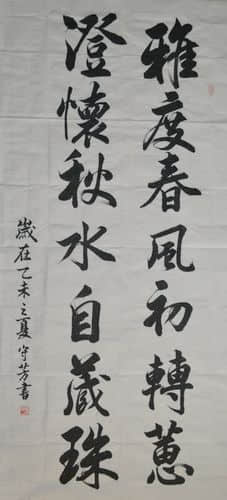 雅度春風初轉蕙
澄懷秋水自藏珠
歲在乙未之夏守芳書